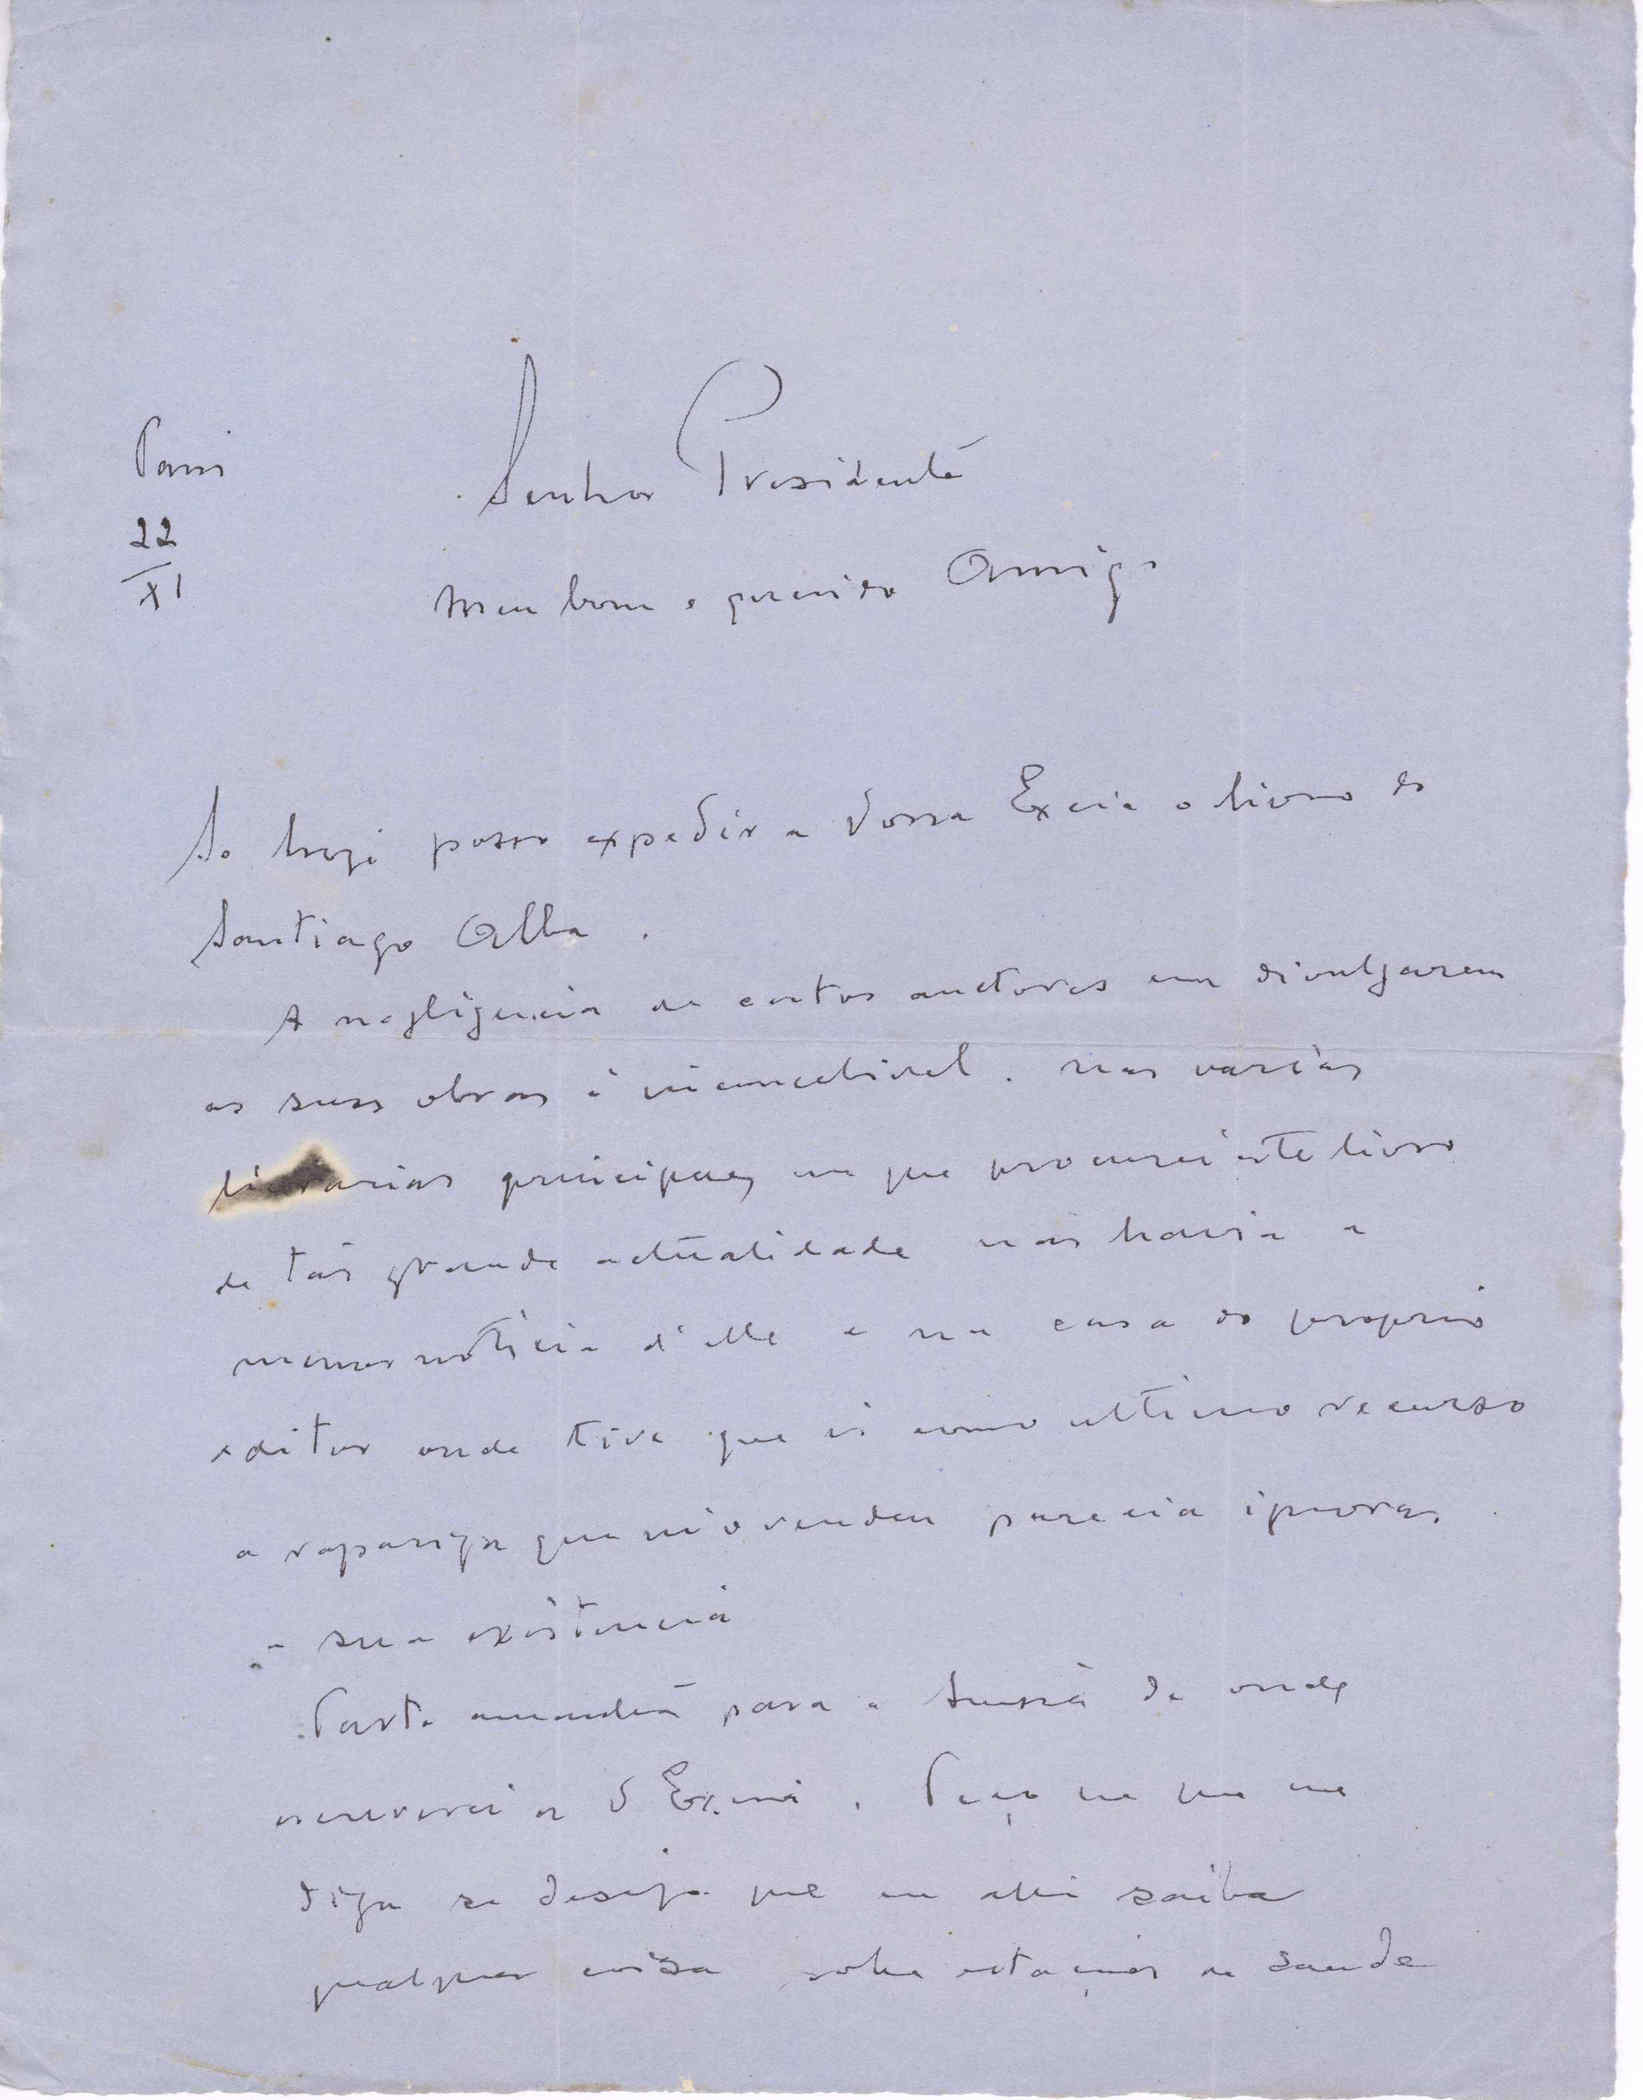 Paris
22
XI
Senhor Presidente
Meu bom e querido Amigo
So hoje posso expedir a Vossa Excia o livro do
Santiago Alba.
A negligencia de certos auctores em divulgarem
as suas obras é inconcebivel. Nas varias
livrarias principaes em que procurei este livro
de tão grande actualidade não havia a
menor noticia d'elle e na casa do proprio
editor onde tive que ir como ultimo recurso
a rapariga que m'o vendeu parecia ignorar
a sua existencia
Parto amanhã para a Suissa de onde
escreverei a V Excia. Peço que me
diga se deseja que eu alli saiba
qualquer coisa sobre estações de saude